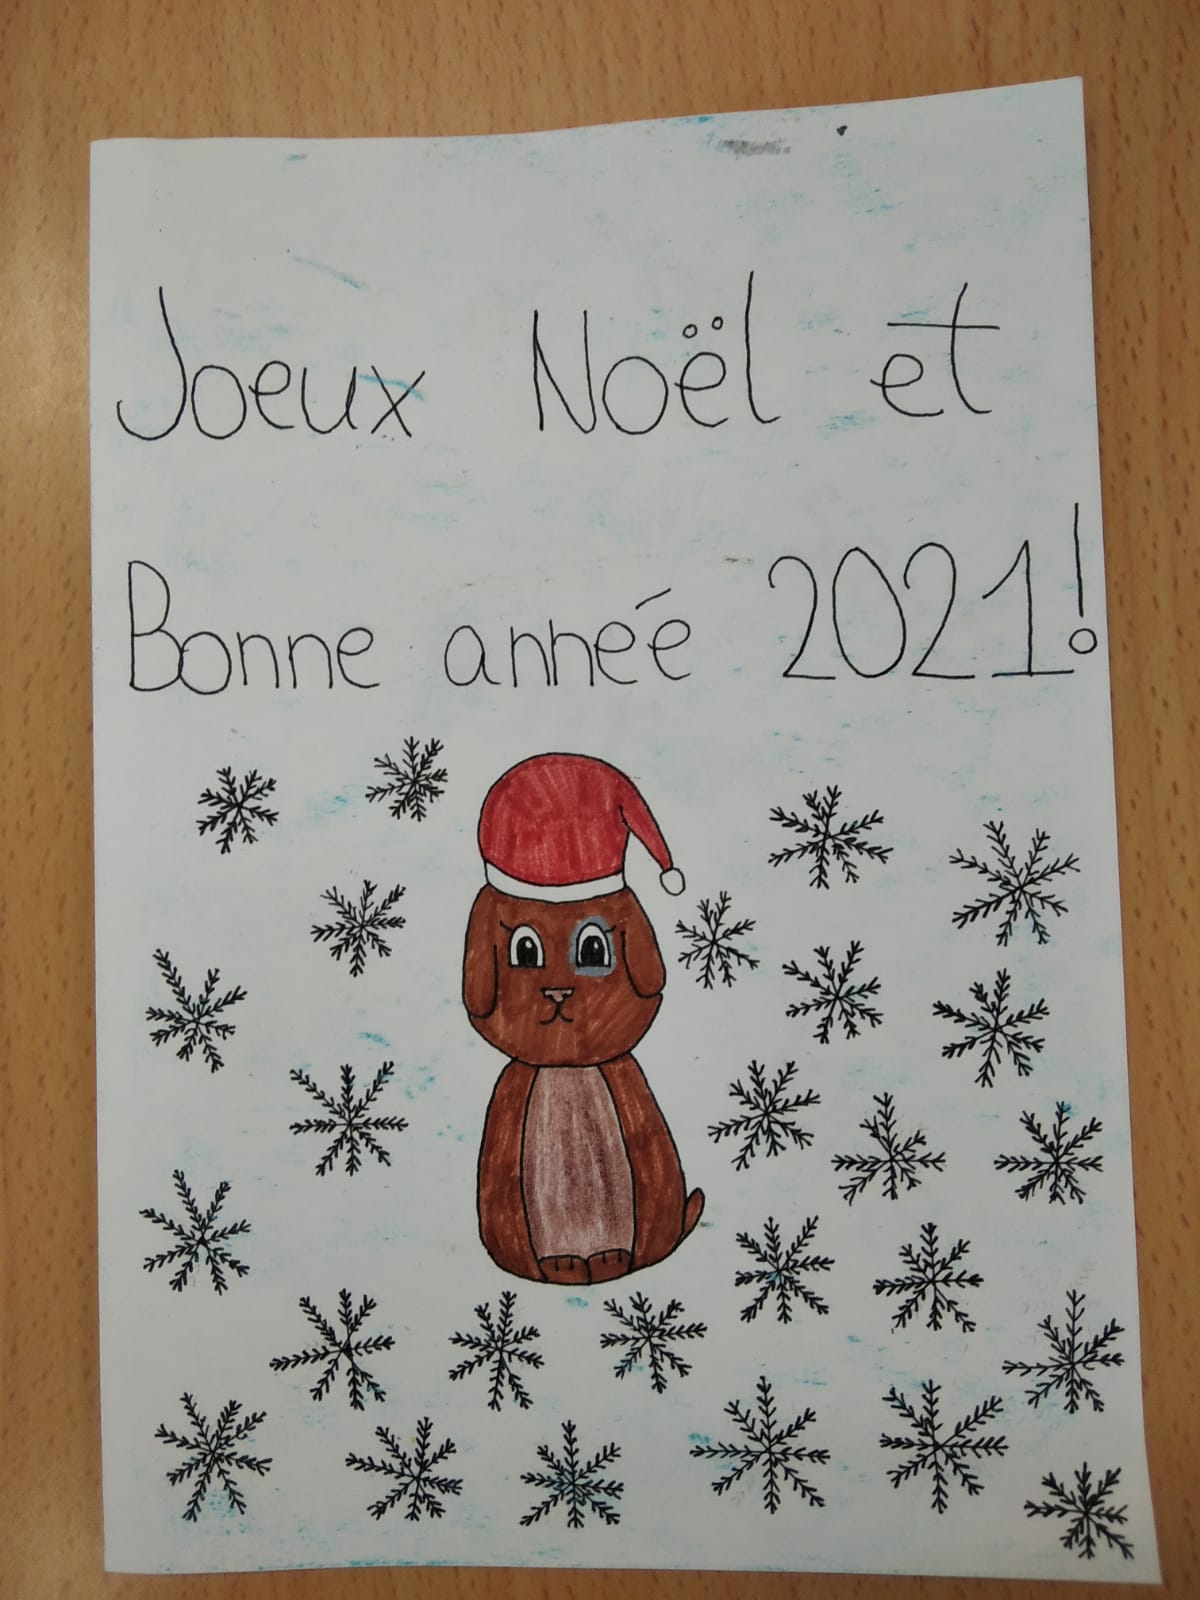 Joeux Noël et
Bonne année 2021!